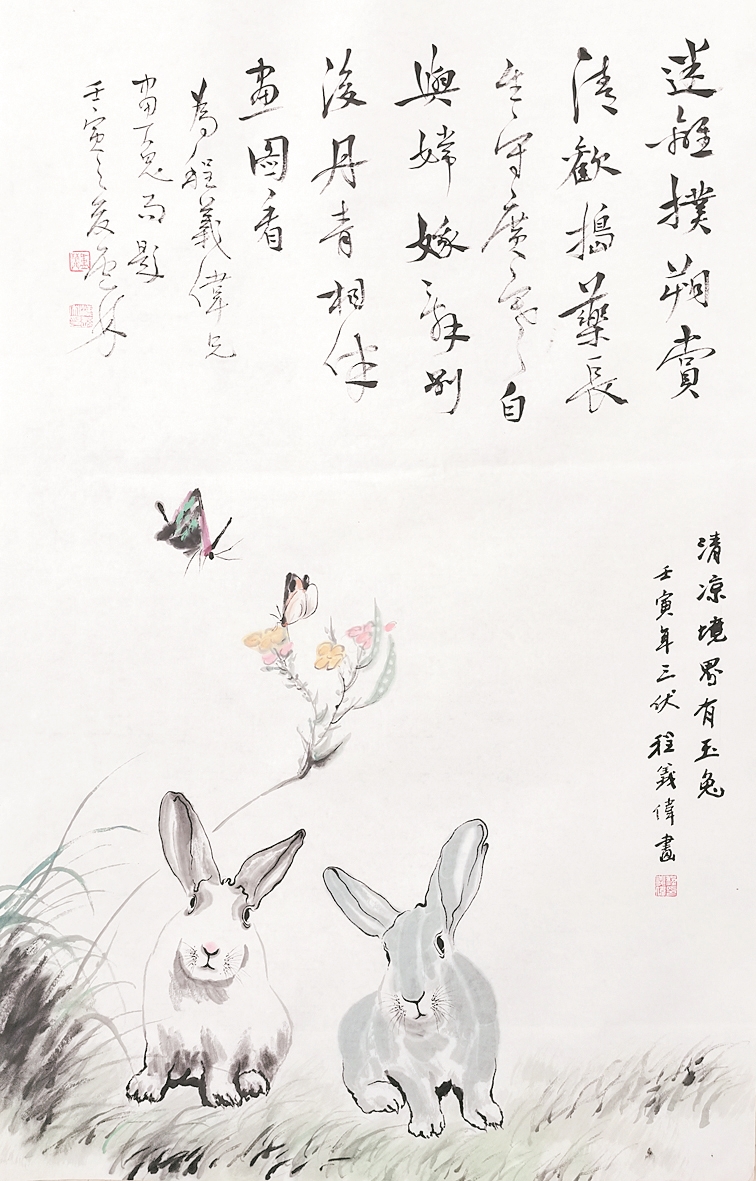 迷離撲朔賞
清歡搗藥長
生守廣寒自
與嫦娥辭別
後丹青相伴
畫圖看
為程義偉兄
畫玉兔而題
壬寅之夏
清凉境界有玉兔
壬寅年三伏 程義偉畫